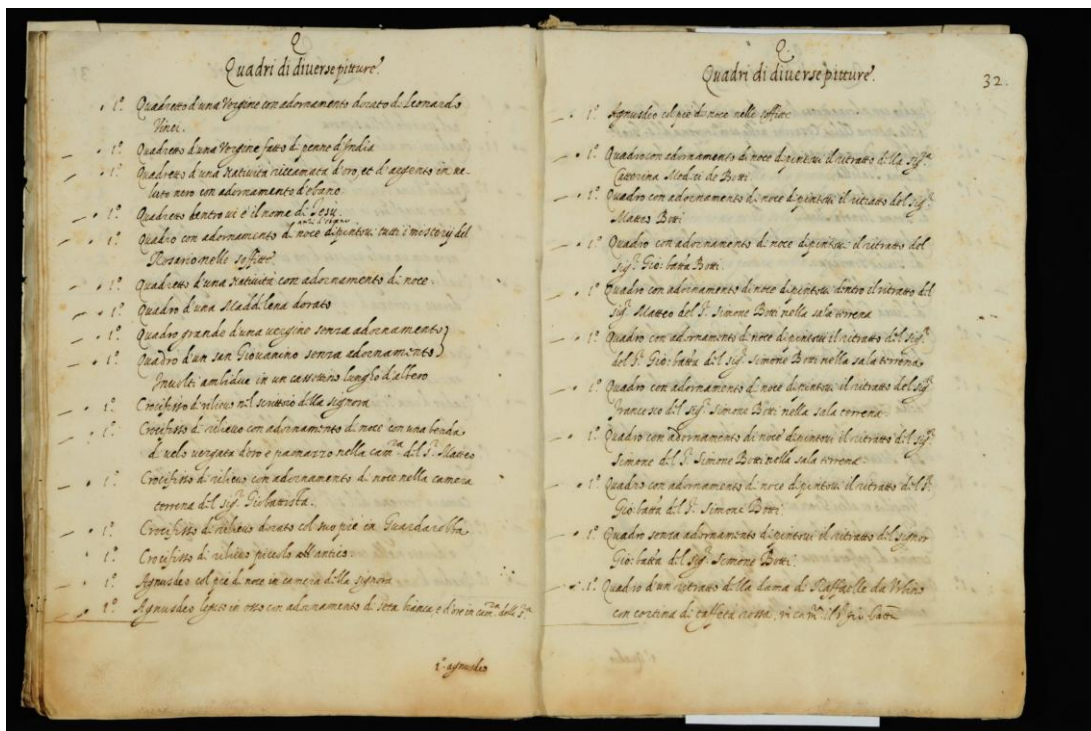 Q
Quadri di diverse pitture.
1º. Quadretto d'una Vergine con adornamento dorato di Leonardo
Vinci.
1º. Quadretto d'una Vergine fatto di penne d'India
1º. Quadretto d'una Natività riccamata d'oro, et d'argento in ve-
luto nero con adornamento d'ebano
1º. Quadretto dentrovi è il nome di Jesù.
1º. Quadro con adornamento di noce dipintovi tutti i misterij del
Rosario nelle soffitte.
1º. Quadretto d'una Natività con adornamento di noce.
1º. Quadro d'una Maddalena dorato
1º. Quadro grande d'una vergine senza adornamento
1º. Quadro d'un san Giovanino senza adornamento
Involti ambidua in un cassettino lungho d'albero
1º. Crocifisso di rilievo nel scrittoio della signora
1º. Crocifisso di rilievo con adornamento di noce con una benda
di velo vergata d'oro e pavonazzo nella cam.ra del S.r Matteo
1º. Crocifisso di rilievo con adornamento di noce nella camera
terrena del sig.r Giobattista.
1º. Crocifisso di rilievo dorato col suo piè in Guardarobba
1º. Crocifisso di rilievo piccolo all'antica.
1º. Agnusdeo col piè di noce in camera della signora
1º. Agnusdeo in osso con adornamento di seta bianca e d'oro in cam.ra della S.ra
1º. agnusdeo
Q.
Quadri di diverse pitture.
32.
1º. Agnusdeo col piè di noce nelle soffitte
1º. Quadro con adornamento di noce dipintovi il ritratto della sig.ra
Catterina Medici de Botti.
1º. Quadro con adornamento di noce dipintovi il ritratto del sig.r
Matteo Botti
1º. Quadro con adornamento di noce dipintovi il ritratto del
sig.r Gio: batta Botti.
1º. Quadro con adornamento di noce dipintovi dentro il ritratto del
sig.r Matteo del S.r Simone Botti nella sala terrena
1º. Quadro con adornamento di noce dipintovi il ritratto del sig.r
del S.r Gio: batta del sig.r Simone Botti nella sala terrena
1º. Quadro con adornamento di noce dipintovi il ritratto del sig.r
Francesco del sig.r Simone Botti nella sala terrena
1º. Quadro con adornamento di noce dipintovi il ritratto del sig.r
Simone del S.r Simone Botti nella sala terrena
1º. Quadro con adornamento di noce dipintovi il ritratto del S.r
Gio: batta del S.r Simone Botti
1º. Quadro senza adornamento dipintovi il ritratto del signor
Gio: batta del sig.r Simone Botti.
1º. Quadro d'un ritratto della dama di Raffaelle da Urbino
con cortina di taffetà rossa, in cam.ra